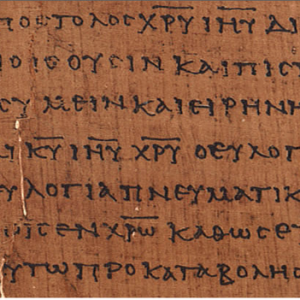 ΠΟϹΤΟΛΟϹ Χ̅Ρ̅Υ̅ Ι̅Η̅Υ̅ ΔΙ
ΙΟΙϹ ΟΥϹΙΝ ΚΑΙ ΠΙϹΤ
ϹΥ ΜΕΙΝ ΚΑΙ ΕΙΡΗΝΗ
Κ̅Υ̅ Ι̅Η̅Υ̅ Χ̅Ρ̅Υ̅ Ο ΕΥΛΟΓ
ΥΛΟΓΙΑ ΠΝΕΥΜΑΤΙΚ
ΟΙϹ ΕΝ Χ̅Ρ̅Ω̅ ΚΑΘΩϹ ΕΞ
ΥΤΩ ΠΡΟ ΚΑΤΑΒΟΛΗϹ